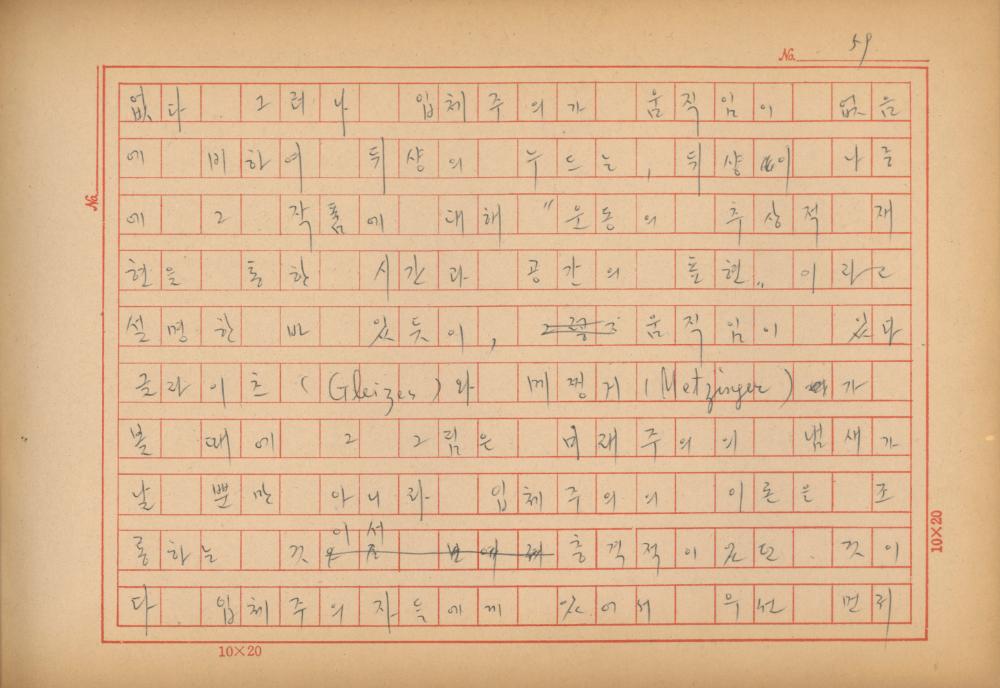 No. 59
없다 그러나 입체주의가 움직임이 없음
에 비하여 뒤샹의 누드는, 뒤샹이 나중
에 그 작품에 대해 "운동의 추상적 재
현을 통한 시간과 공간의 표현" 이라고
설명한 바 있듯이, 움직임이 있다
글라이츠 (Gleizes)와 메쩡거 (Metzinger)가
볼 때에 그 그림은 미래주의의 냄새가
날 뿐만 아니라 입체주의의 이론을 조
롱하는 것이서 충격적이었던 것이
다 입체주의자들에게 있어서 우선 먼저
No.
10×20
10×20